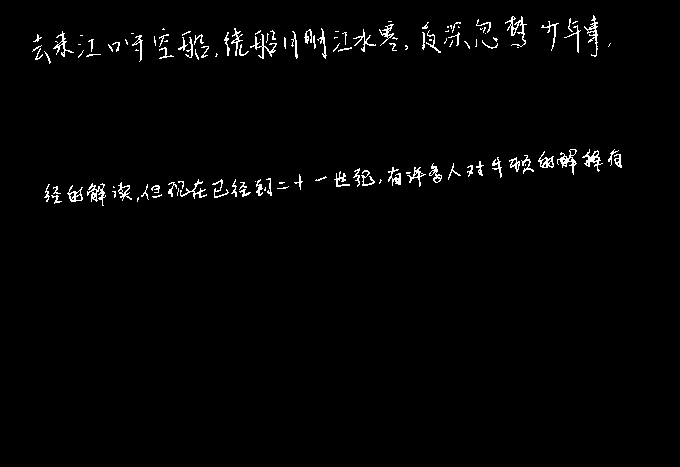 去来江口守空船,绕船月明江水寒,夜深忽梦少年事,
经的解读,但现在已经到二十一世纪,有许多人对牛顿的解释有